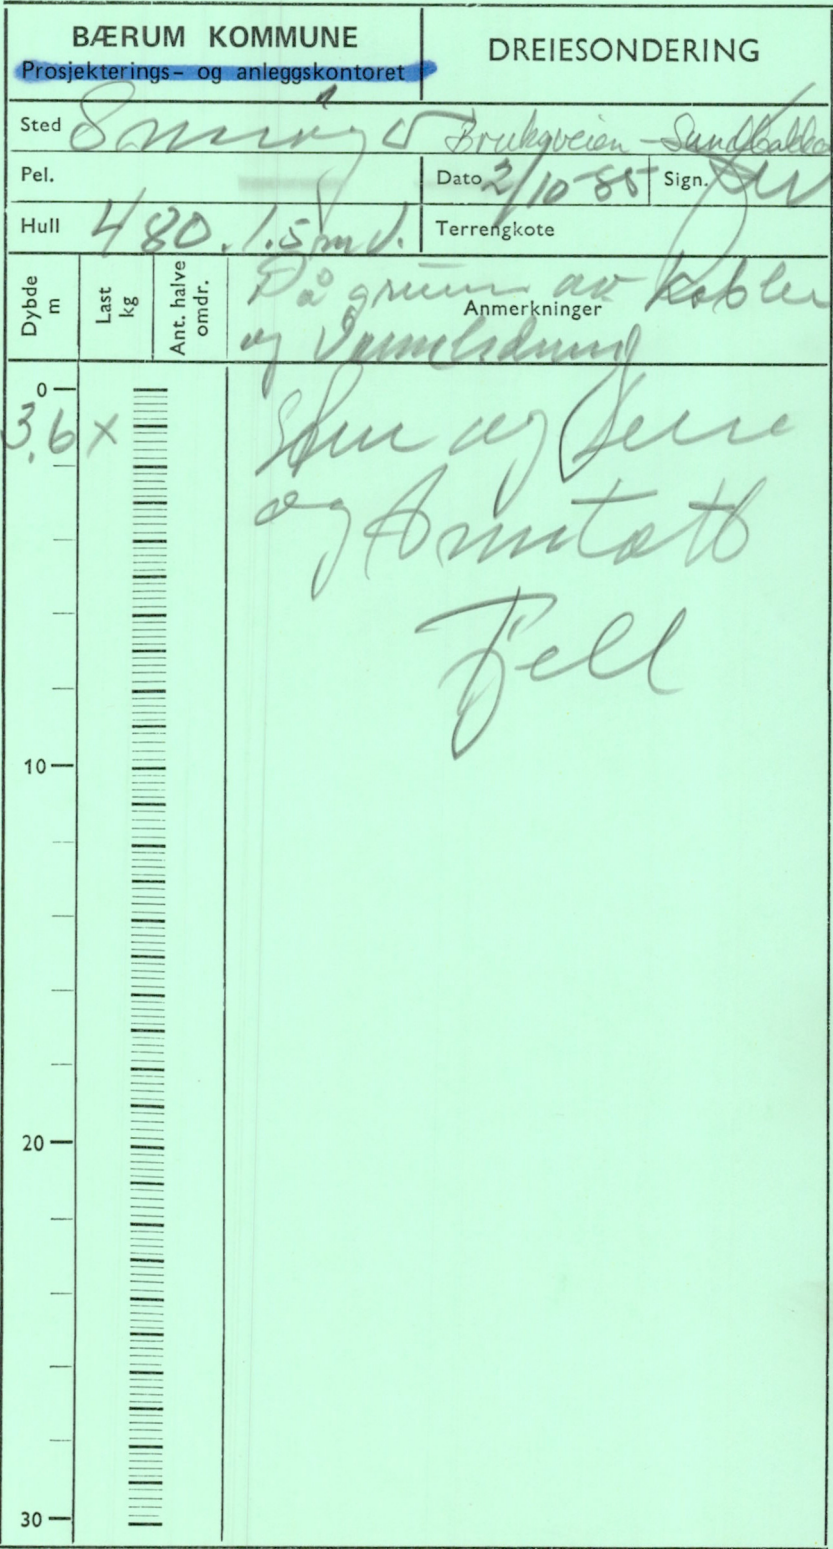 BÆRUM KOMMUNE
Prosjekterings- og anleggskontoret
DREIESONDERING
Sted Brukqveien - Sundbakken
Pel.
Dato 2/10-85 Sign.
Hull 480. 1.5m v.
Terrengkote
Dybde m
Last kg
Ant. halve omdr.
Anmerkninger
På grunn av kabler
og Vannledning
0
3,6 x
og
og Anntatt
Fjell
10
20
30